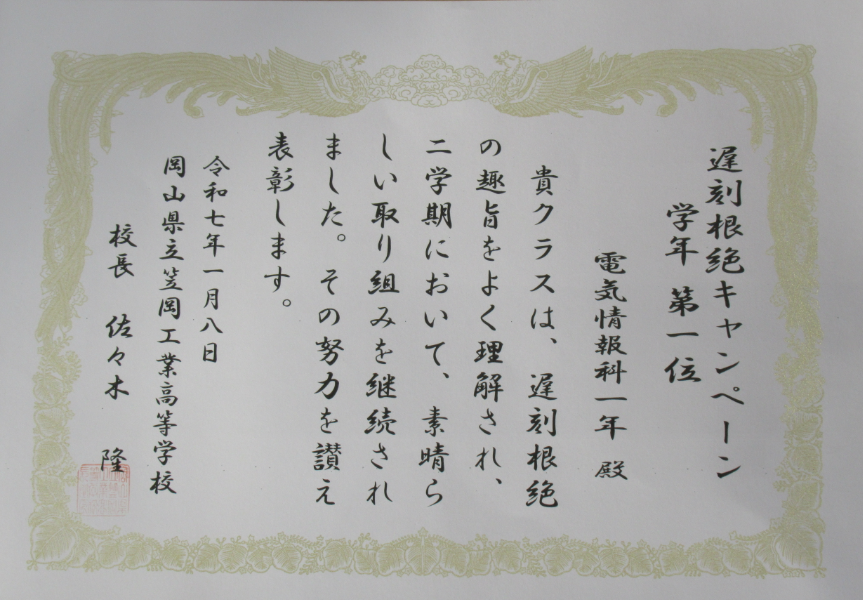 遅刻根絶キャンペーン
学年 第一位
電気情報科一年 殿
貴クラスは、遅刻根絶
の趣旨をよく理解され、
二学期において、素晴ら
しい取り組みを継続され
ました。その努力を讃え
表彰します。
令和七年一月八日
岡山県立笠岡工業高等学校
校長 佐々木 隆